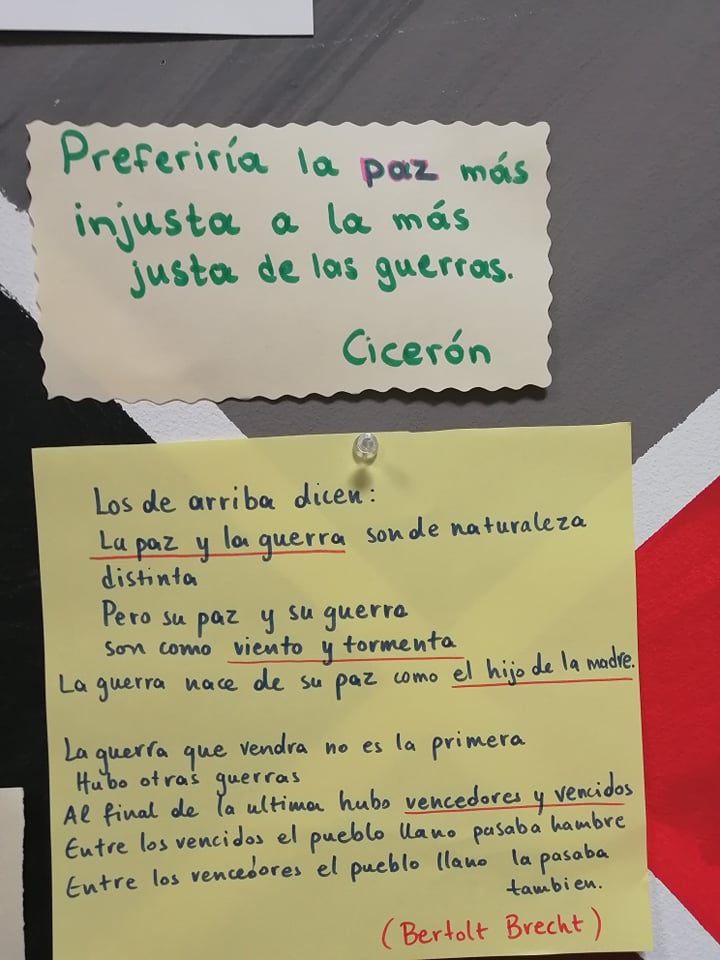 Preferiría la paz más
injusta a la más
justa de las guerras.
Cicerón
Los de arriba dicen:
La paz y la guerra son de naturaleza
distinta
Pero su paz y su guerra
son como viento y tormenta
La guerra nace de su paz como el hijo de la madre.
La guerra que vendra no es la primera
Hubo otras guerras
Al final de la ultima hubo vencedores y vencidos
Entre los vencidos el pueblo llano pasaba hambre
Entre los vencedores el pueblo llano la pasaba
tambien.
(Bertolt Brecht)